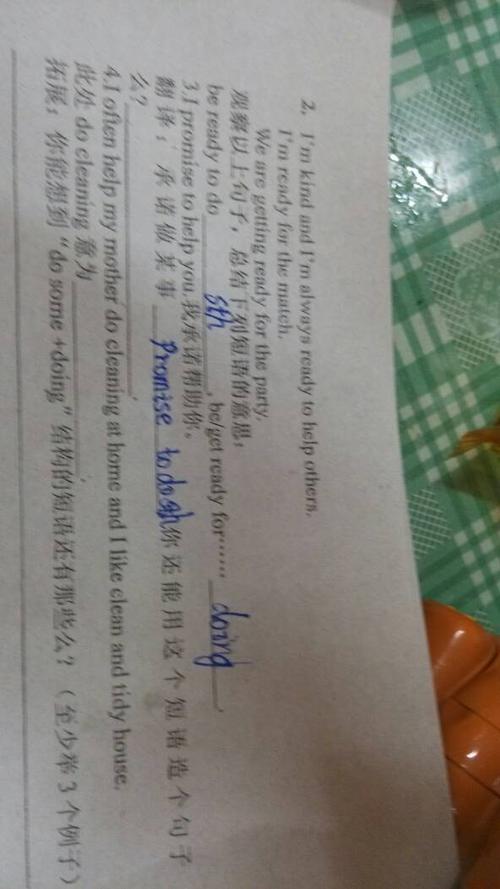 2. I'm kind and I'm always ready to help others.
I'm ready for the match.
We are getting ready for the party.
观察以上句子，总结下列短语的意思：
be ready to do sth , be/get ready for…… doing .
3.I promise to help you.我承诺帮助你。
翻译：承诺做某事 Promise to do sth 你还能用这个短语造个句子
么？
4.I often help my mother do cleaning at home and I like clean and tidy house.
此处 do cleaning 意为 .
拓展：你能想到“do some +doing”结构的短语还有那些么？（至少举3个例子）